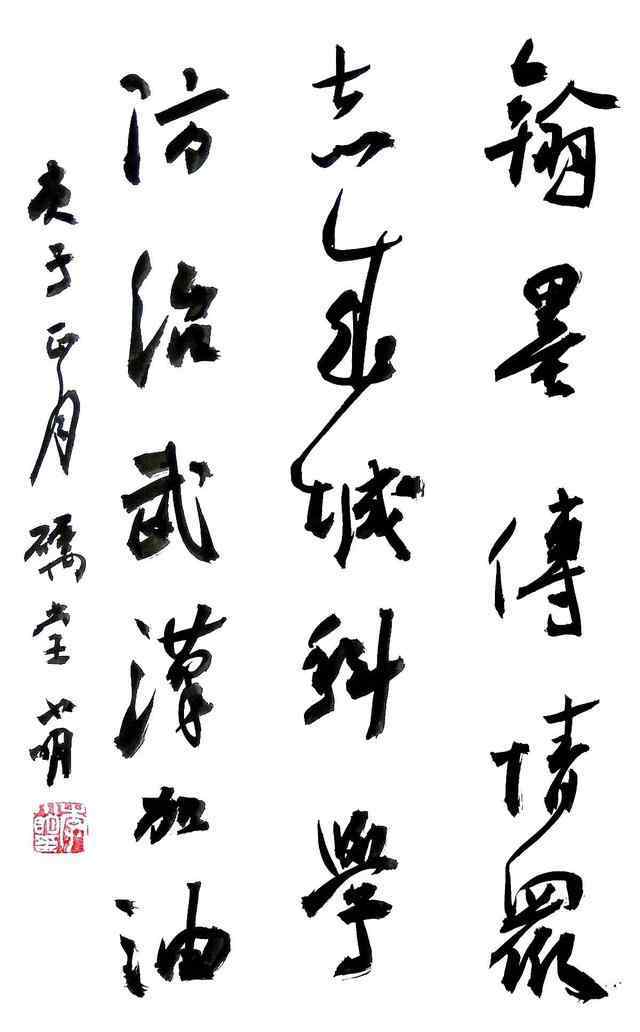 翰墨傳情眾
志成城科學
防治武漢加油
庚子正月 堂萌